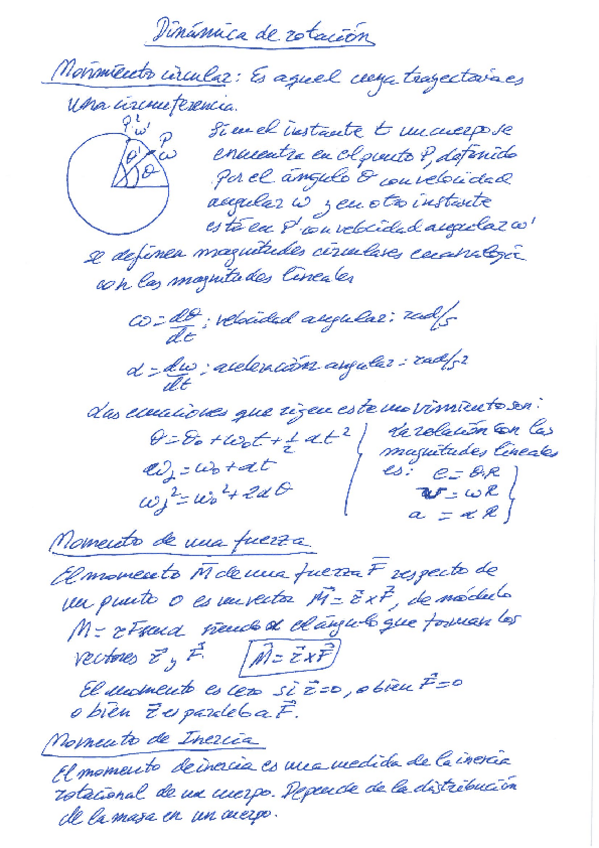 Dinámica de rotación
Movimiento circular: Es aquel cuya trayectoria es
una circunferencia.
P' ω'
P
ω
θ'
θ
Si en el instante t un cuerpo se
encuentra en el punto P, definido
por el ángulo θ con velocidad
angular ω y en otro instante
está en P' con velocidad angular ω'
se definen magnitudes circulares en analogía
con las magnitudes lineales
ω = dθ/dt ; velocidad angular: rad/s
α = dω/dt : aceleración angular: rad/s2
Las ecuaciones que rigen este movimiento son:
θ = θ₀ + ω₀t + 1/2 αt²
ω_f = ω₀ + αt
ω_f² = ω₀² + 2αθ
La relación con las
magnitudes lineales
es: e = θ.R
v = ωR
a = αR
Momento de una fuerza
El momento M⃗ de una fuerza F⃗ respecto de
un punto O es un vector M⃗ = r⃗ x F⃗, de módulo
M = rFsenα siendo α el ángulo que forman los
vectores r⃗ y F⃗. M⃗ = r⃗ x F⃗
El momento es cero si r⃗ = 0, o bien F⃗ = 0
o bien r⃗ es paralelo a F⃗.
Momento de Inercia
El momento de inercia es una medida de la inercia
rotacional de un cuerpo. Depende de la distribución
de la masa en un cuerpo.